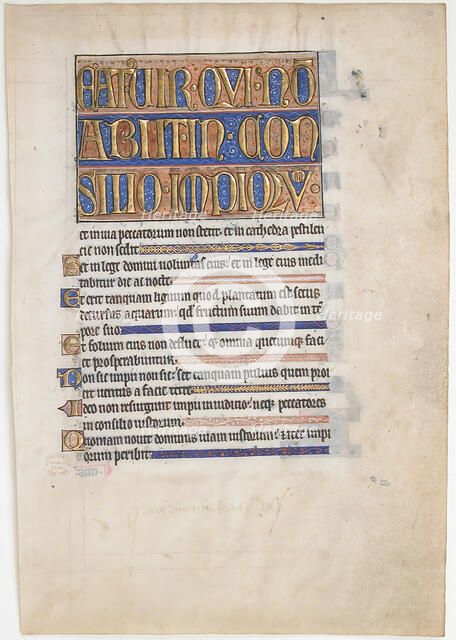 EATUIR·QUI·NO
ABIIT·IN·CON
SILIO·IMPIOꝜ·V
et in uia peccatorum non stetit· et in cathedra pestilen
cie non sedit·
Set in lege domini uoluntas eius· et in lege eius medi
tabitur die ac nocte·
Et erit tanquam lignum quod plantatum est secus
decursus aquarum· qd fructum suum dabit in tem
pore suo·
Et folium eius non defluet· et omnia quecunque faciet
prosperabuntur·
Non sic impii non sic· set tanquam puluis quem proi
cit uentus a facie terre·
Ideo non resurgunt impii in iudicio· neque peccatores
in consilio iustorum·
Quoniam nouit dominus uiam iustorum· et iter impi
orum peribit·
Heritage